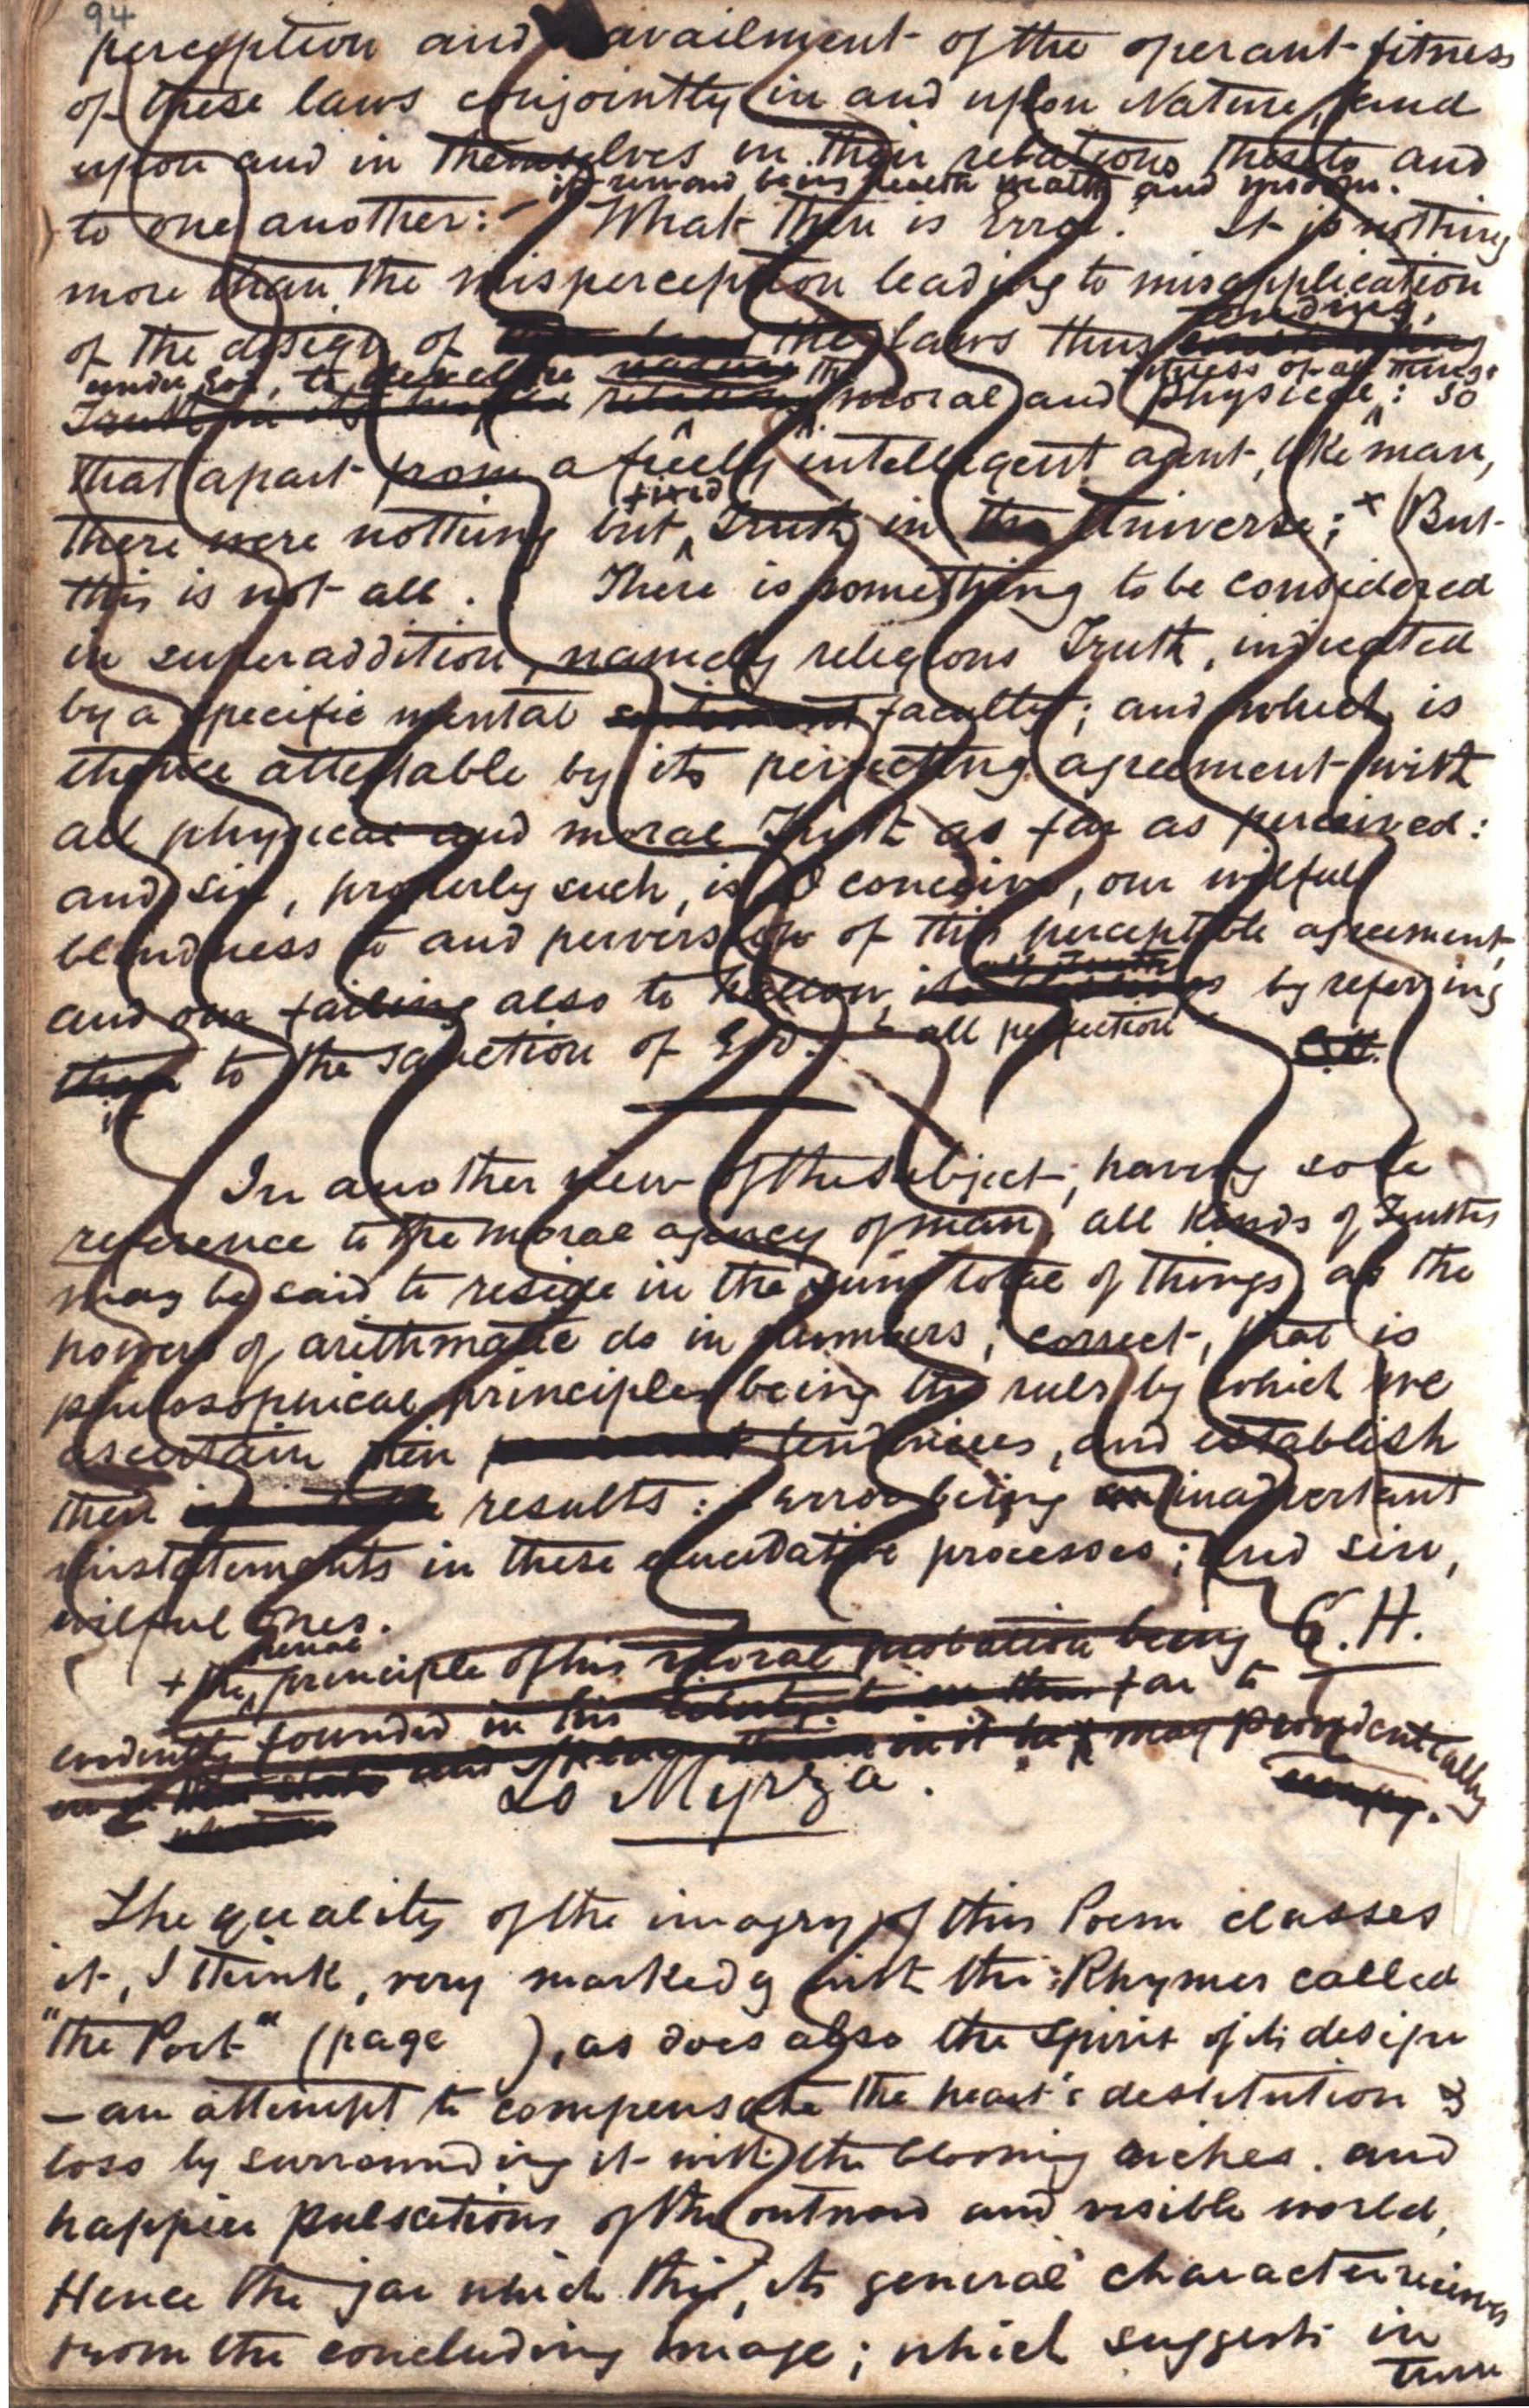 94
perception and availment of the operant fitness
of these laws conjointly in and upon Nature, and
upon and in themselves in their relations thereto and
its reward being health wealth and wisdom.
to one another: What then is Error? It is nothing
more than the misperception leading to misapplication
of the design of the laws thus tending,
under God, to develope the moral and physical fitness of all things: so
that apart from a freely intelligent agent, like man,
there were nothing but fixed Truth in the Universe; x But
this is not all. There is something to be considered
in superaddition, namely religious Truth, indicated
by a specific mental faculty; and which is
thence attestable by its perfecting agreement with
all physical and moral Truth as far as perceived:
and sin, properly such, is I conceive, our wilful
blindness to and perversion of this perceptible agreement,
and our failing also to hallow all perfection by referring
it to the sanction of God. C.H.
In another view of the subject, having sole
reference to the moral agency of man, all kinds of Truths
may be said to reside in the sum total of things as the
powers of arithmatic do in numbers; correct, that is
philosophical principles being the rules by which we
ascertain their tendencies, and establish
their results: error being inadvertant
mistatements in these elucidative processes; and sin,
wilful ones.
C.H.
+ the penal principle of his moral probation being
evidently founded in his far to
and in it may providentially
To Myrza.
The quality of the imagry of this Poem classes
it, I think, very markedly with the Rhymes called
"the Poet" (page ), as does also the spirit of its design
— an attempt to compensate the heart's destitution &
loss by surrounding it with the blooming riches and
happier pulsations of the outward and visible world.
Hence the jar which this, its general character receives
from the concluding image; which suggests in
turn